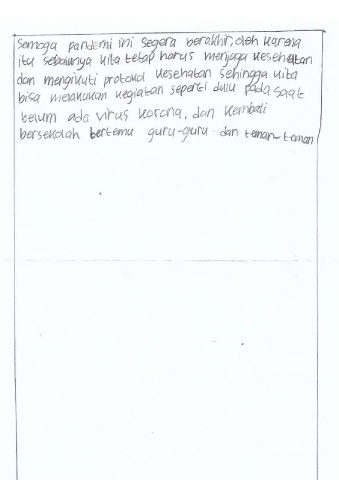 Semoga pandemi ini segera berakhir, oleh karena
itu sebaiknya kita tetap harus menjaga kesehatan
dan mengikuti protokol kesehatan sehingga kita
bisa melakukan kegiatan seperti dulu pada saat
belum ada virus korona, dan kembali
bersekolah bertemu guru-guru dan teman-teman